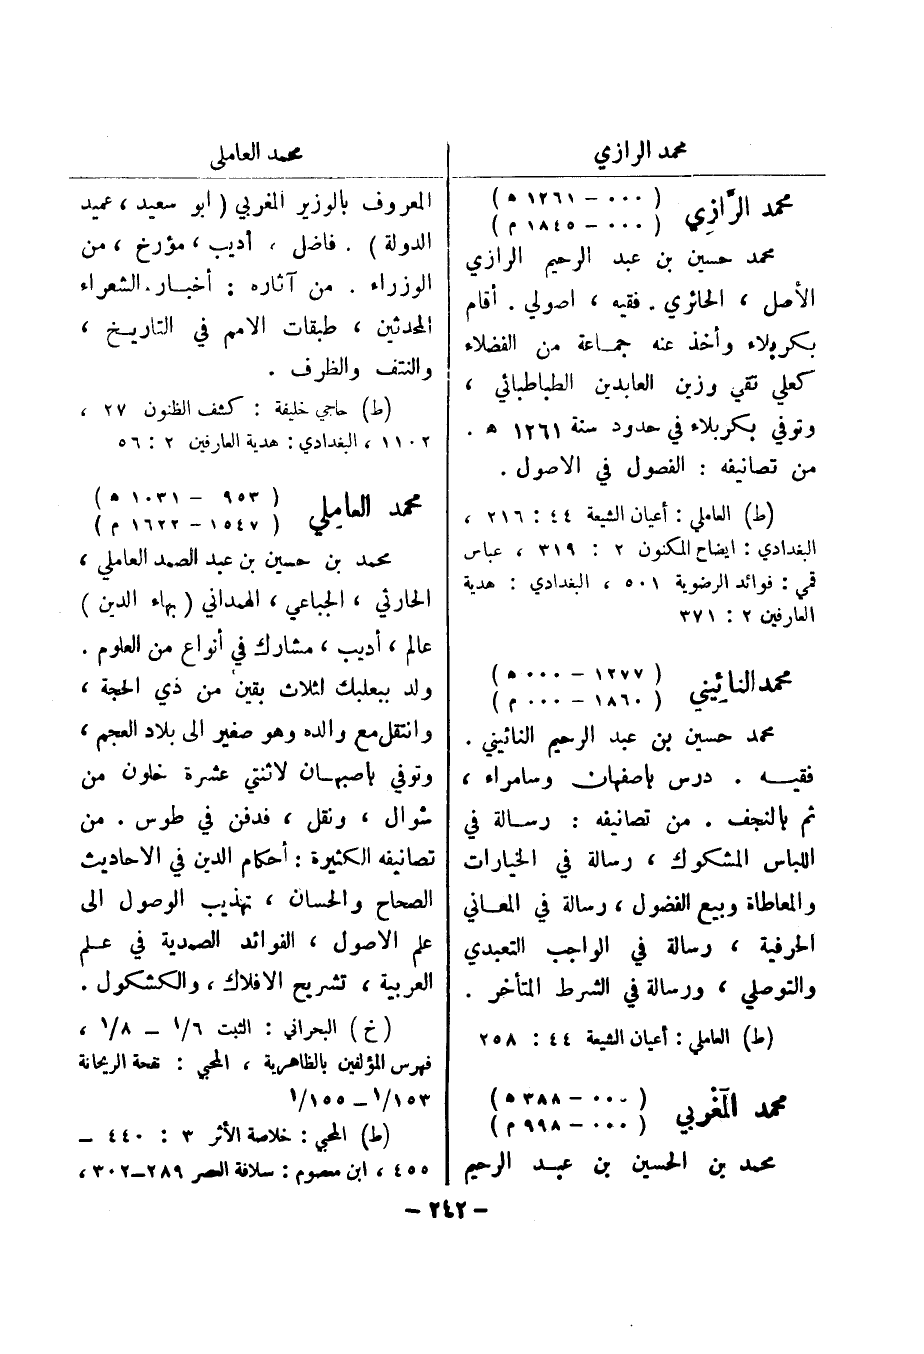 محمد الرازي
محمد الرَّازِي
( ٠٠٠ – ١٢٦١ ه )
( ٠٠٠ – ١٨٤٥ م )
محمد حسين بن عبد الرحيم الرازي
الأصل ، الحائري . فقيه ، اصولي . أقام
بكربلاء وأخذ عنه جماعة من الفضلاء
كعلي نقي وزين العابدين الطباطبائي ،
وتوفي بكربلاء في حدود سنة ١٢٦١ ه .
من تصانيفه : الفصول في الاصول .
(ط) العاملي : أعيان الشيعة ٤٤ : ٢١٦ ،
البغدادي : ايضاح المكنون ٢ : ٣١٩ ، عباس
قمي : فوائد الرضوية ٥٠١ ، البغدادي : هدية
العارفين ٢ : ٣٧١
محمد النائيني
( ١٢٧٧ – ٠٠٠ ه )
( ١٨٦٠ – ٠٠٠ م )
محمد حسين بن عبد الرحيم النائيني .
فقيه . درس بأصفهان وسامراء ،
ثم بالنجف . من تصانيفه : رسالة في
اللباس المشكوك ، رسالة في الخيارات
والمعاطاة وبيع الفضول ، رسالة في المعاني
الحرفية ، رسالة في الواجب التعبدي
والتوصلي ، ورسالة في الشرط المتأخر .
(ط) العاملي : أعيان الشيعة ٤٤ : ٢٥٨
محمد المَغْربي
( ٠٠٠ – ٣٨٨ ه )
( ٠٠٠ – ٩٩٨ م )
محمد بن الحسين بن عبد الرحيم
محمد العاملي
المعروف بالوزير المغربي ( ابو سعيد ، عميد
الدولة ) . فاضل ، أديب ، مؤرخ ، من
الوزراء . من آثاره : أخبار الشعراء
المحدثين ، طبقات الامم في التاريخ ،
والنتف والظرف .
(ط) حاجي خليفة : كشف الظنون ٢٧ ،
١١٠٢ ، البغدادي : هدية العارفين ٢ : ٥٦
محمد العامِلي
( ٩٥٣ – ١٠٣١ ه )
( ١٥٤٧ – ١٦٢٢ م )
محمد بن حسين بن عبد الصمد العاملي ،
الحارثي ، الجباعي ، الهمداني ( بهاء الدين )
عالم ، أديب ، مشارك في أنواع من العلوم .
ولد ببعلبك لثلاث بقين من ذي الحجة ،
وانتقل مع والده وهو صغير الى بلاد العجم ،
وتوفي بأصبهان لاثنتي عشرة خلون من
شوال ، ونقل ، فدفن في طوس . من
تصانيفه الكثيرة : أحكام الدين في الاحاديث
الصحاح والحسان ، تهذيب الوصول الى
علم الاصول ، الفوائد الصمدية في علم
العربية ، تشريح الافلاك ، والكشكول .
( خ ) البحراني : الثبت ١/٦ – ١/٨ ،
فهرس المؤلفين بالظاهرية ، المحبي : نفحة الريحانة
١/١٥٣ – ١/١٥٥
(ط) المحبي : خلاصة الأثر ٣ : ٤٤٠ –
٤٥٥ ، ابن معصوم : سلافة العصر ٢٨٩–٣٠٢ ،
– ٢٤٢ –